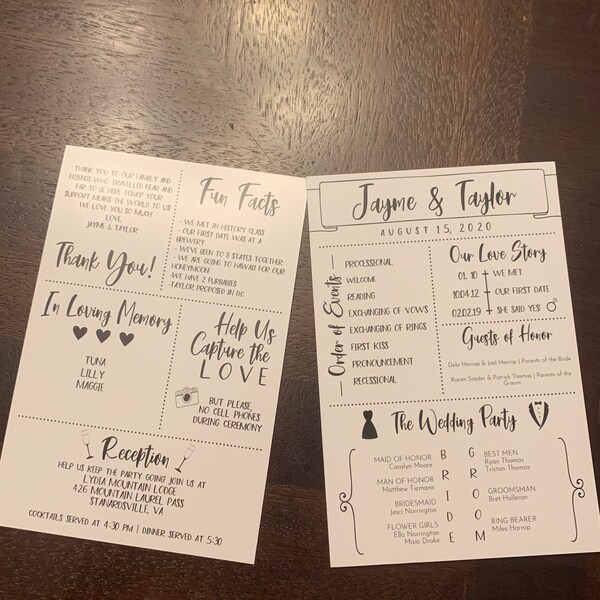 THANK YOU TO OUR FAMILY AND
FRIENDS WHO TRAVELLED NEAR AND
FAR TO BE HERE TODAY! YOUR
SUPPORT MEANS THE WORLD TO US
WE LOVE YOU SO MUCH
LOVE,
JAYME & TAYLOR
Thank You!
Fun Facts
- WE MET IN HISTORY CLASS
- OUR FIRST DATE WAS AT A
BREWERY
- WE'VE BEEN TO 8 STATES TOGETHER
- WE ARE GOING TO HAWAII FOR OUR
HONEYMOON!
-WE HAVE 2 FURBABIES
-TAYLOR PROPOSED IN D.C.
In Loving Memory
TUNA
LILLY
MAGGIE
Help Us
Capture the
LOVE
BUT PLEASE,
NO CELL PHONES
DURING CEREMONY
Reception
HELP US KEEP THE PARTY GOING JOIN US AT
LYDIA MOUNTAIN LODGE
426 MOUNTAIN LAUREL PASS
STANARDSVILLE, VA
COCKTAILS SERVED AT 4:30 PM | DINNER SERVED AT 5:30
Jayme & Taylor
AUGUST 15, 2020
Order of Events
PROCESSIONAL
WELCOME
READING
EXCHANGING OF VOWS
EXCHANGING OF RINGS
FIRST KISS
PRONOUNCEMENT
RECESSIONAL
Our Love Story
01. 10 WE MET
10.04.12 OUR FIRST DATE
02.02.19 SHE SAID YES!
Guests of Honor
Debi Harrop & Joel Harrop | Parents of the Bride
Karen Snyder & Patrick Thomas | Parents of the
Groom
The Wedding Party
BRIDE
GROOM
MAID OF HONOR
Caralyn Moore
MAN OF HONOR
Matthew Tiemann
BRIDESMAID
Jesci Norrington
FLOWER GIRLS
Ella Norrington
Maia Drake
BEST MEN
Ryan Thomas
Tristan Thomas
GROOMSMAN
Bret Halleran
RING BEARER
Miles Harrop